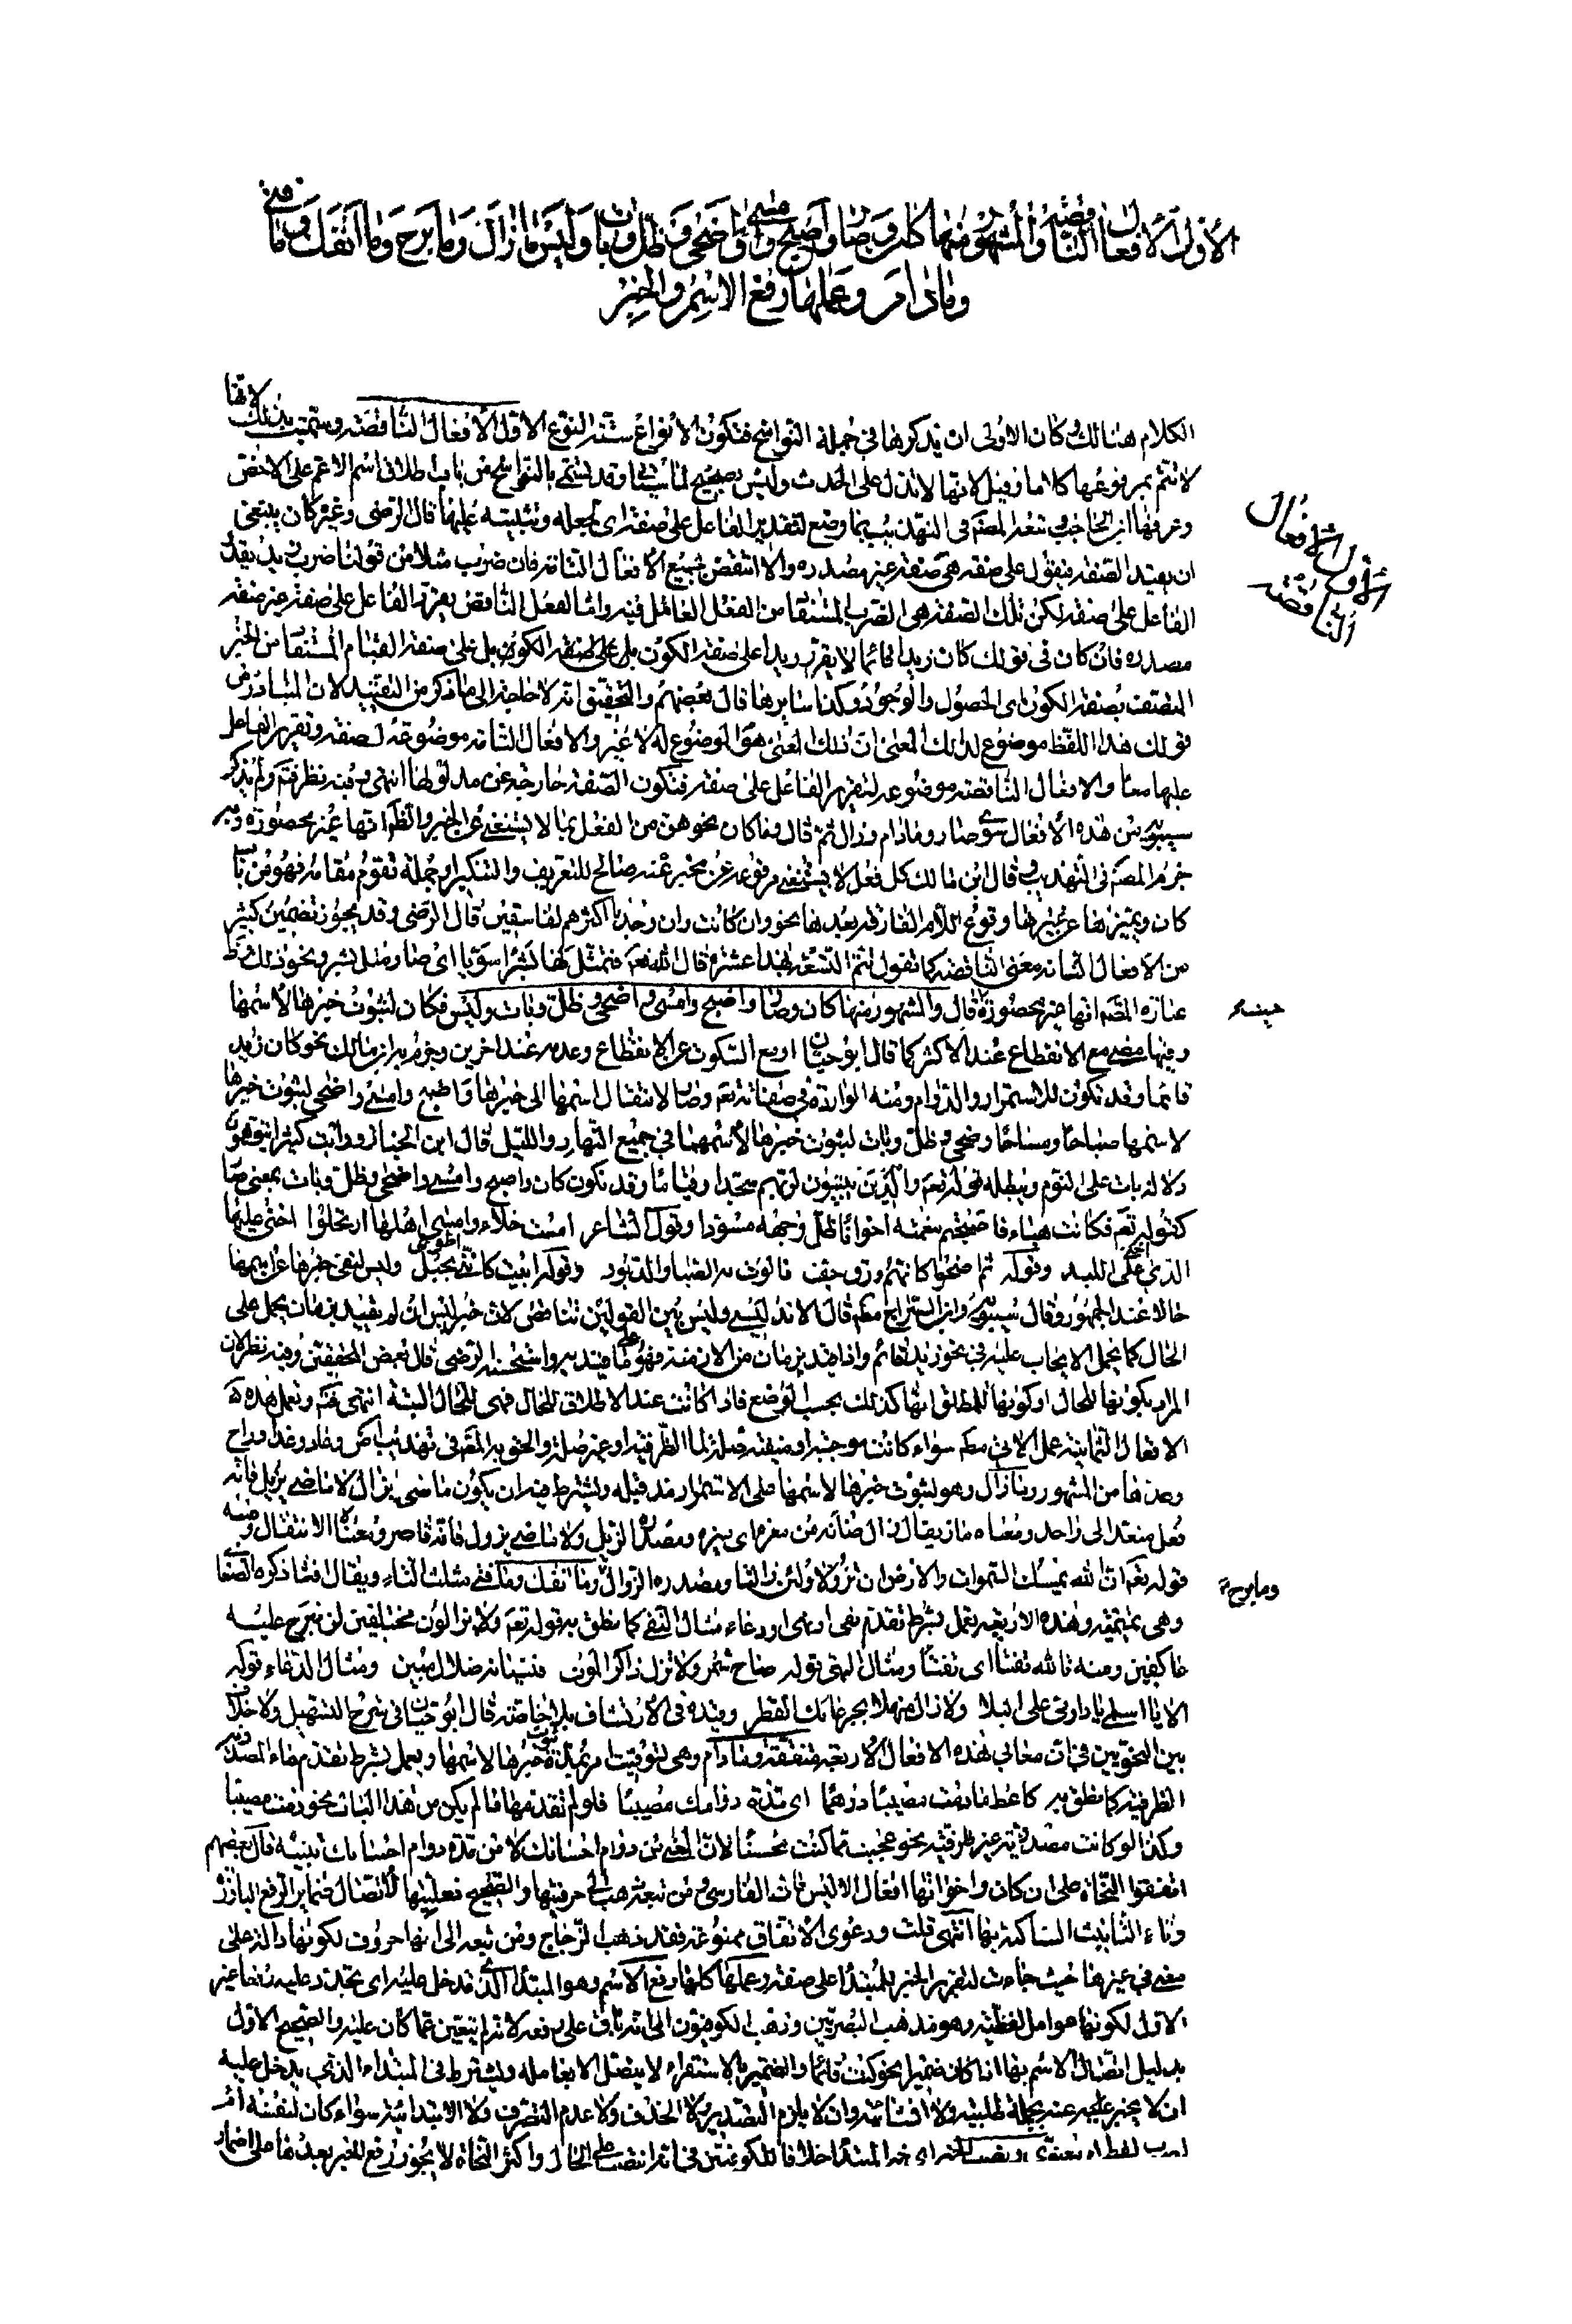 الأول الأفعال الناقصة والمشهور منها كان وصار وأصبح وأمسى وأضحى وظل وبات وليس وما زال وما برح وما انفك وما فتئ
وما دام وعملها رفع الاسم والخبر
الكلام هنالك وكان الاولى ان يذكرها في جملة النواسخ فتكون الانواع ستة النوع الاول الافعال الناقصة وسميت بذلك لانها
لا تتم بمرفوعها كلاما وقيل لانها لا تدل على الحدث وليس بصحيح لما سيأتي وقد تسمى بالنواسخ من باب اطلاق اسم الاعم على الاخص
وعرفها ابن الحاجب وتبعه المصـ في التهذيب بما وضع لتقدير الفاعل على صفة اى لجعله وتثبيته عليها قال الرضى وغيره كان ينبغى
ان يقيد الصفة فيقول على صفة هى صفة غير مصدره والا انتقض بجميع الافعال التامة فان ضرب مثلا من قولنا ضرب زيد يقدر
الفاعل على صفة لكن تلك الصفة هى الضرب المشتق من الفعل العامل فيه واما الفعل الناقص يقرر الفاعل على صفة غير صفة
مصدره فان كان في قولك كان زيد قائما لا يقرر زيدا على صفة الكون بل على صفة الكون بل على صفة القيام المشتق من الخبر
المتصف بصفة الكون اى الحصول والوجود وكذا سايرها قال بعضهم والتحقيق انه لا حاجة الى ما ذكر من التقييد لان المتبادر من
قولك هذا اللفظ موضوع لذلك المعنى ان ذلك المعنى هو الموضوع له لا غير والافعال التامة موضوعة لصفة وتقرير الفاعل
عليها معا والافعال الناقصة موضوعة لتقرير الفاعل على صفة فتكون الصفة خارجة عن مدلولها انتهى وفيه نظر فتم ولم يذكر
سيبويه من هذه الافعال سوى صار وما دام وزال ثم قال وما كان نحوهن من الفعل مما لا يستغنى عن الخبر والظ انها غير محصورة وبه
جزم المصـ في التهذيب وقال ابن مالك كل فعل لا يستغنى مرفوعه عن مخبر عنه صالح للتعريف والتنكير او جملة تقوم مقامه فهو من باب
كان ويميزها عن غيرها وقوع اللام الفارقة بعدها نحو وان كانت وان وجدنا اكثرهم لفاسقين قال الرضى وقد يجوز تضمين كثير
من الافعال التامة معنى الناقصة كما تقول تتم التسعة بهذا عشرة قال الله تعـ فتمثل لها بشرا سويا اى صار مثل بشر ونحو ذلك وظ
عبارة المصـ انها غير محصورة حيث قال والمشهور منها كان وصار واصبح وامسى واضحى وظل وبات وليس فكان لثبوت خبرها لاسمها
فيما مضى مع الانقطاع عند الاكثر كما قال ابو حيان او مع السكوت عن الانقطاع وعدمه عند اخرين وجزم به ابن مالك نحو كان زيد
قائما وقد تكون للاستمرار والدوام ومنه الواردة في صفاته تعـ وصار لانتقال اسمها الى خبرها واصبح وامسى واضحى لثبوت خبرها
لاسمها صباحا ومساء وضحى وظل وبات لثبوت خبرها لاسمها في جميع النهار والليل قال ابن الخباز ورايت كثيرا يتوهون
دلالة بات على النوم ويبطله قوله تعـ والذين يبيتون لربهم سجدا وقياما وقد تكون كان واصبح وامسى واضحى وظل وبات بمعنى صار
كقوله تعـ فكانت هباء فاصبحتم بنعمته اخوانا ظل وجهه مسودا وقول الشاعر امست خلاء وامسى اهلها ارتحلوا اخنى عليها
الذي اخنى على لبد وقوله ثم اضحوا كانهم ورق جف فالوت به الصبا والدبور وقوله ابيت كانى بجبل وليس لنفى خبرها عن اسمها
حالا عند الجمهور وقال سيبويه وابن السراج مطـ قال الاندلسى وليس بين القولين تناقض لان خبر ليس ان لم يقيد بزمان يحمل على
الحال كما يحمل الايجاب عليه في نحو زيد قائم واذا قيد بزمان من الازمنة فهو على ما قيد به واستحسنه الرضى قال بعض المحققين وفيه نظر لان
المراد بكونها للحال او كونها للمطلق انها كذلك بحسب الوضع فاذا كانت عند الاطلاق للحال فهى للحال البتة انتهى فتم وتعمل هذه
الافعال الثمانية عمل الاتى مطـ سواء كانت موجبة او منفية صلة لما الظرفية او غير صلة والحق به المصـ في تهذيبه آض وعاد وغدا وراح
وعدها من المشهور وما زال وهو لثبوت خبرها لاسمها على الاستمرار مذ قبله ويشترط فيه ان يكون ماضى يزال لا ماضى يزيل فانه
فعل متعد الى واحد ومعناه ماز يقال زال ضأنه من معزه اى ميزه ومصدره الزيل ولا ماضى يزول فانه قاصر ومعناه الانتقال ومنه
قوله تعـ ان الله يمسك السموات والارض ان تزولا ولئن زالتا ومصدره الزوال وما برح وما انفك وما فتئ مثلث التاء ويقال افتأ ذكره الصغانى
وهى تميمية وهذه الاربعة تعمل بشرط تقدم نفى او نهى او دعاء مثال النفى كما نطق به قوله تعـ ولا يزالون مختلفين لن نبرح عليه
عاكفين ومنه تالله تفتأ اى لا تفتأ ومثال النهى قوله صاح شمر ولا تزل ذاكر الموت فنسيانه ضلال مبين ومثال الدعاء قوله
الا يا اسلمى يا دار مى على البلا ولا زال منهلا بجرعائك القطر وقيده في الارتشاف بلا خاصة قال ابو حيان في شرح التسهيل ولا خلاف
بين النحويين في ان معانى هذه الافعال الاربعة متفقة وما دام وهى لتوقيت امر بمدة ثبوت خبرها لاسمها وتعمل بشرط تقدم ما المصدرية
الظرفية كما نطق به كاعط ما دمت مصيبا درهما اى مدة دوامك مصيبا فلو لم تقدمها ما لم يكن من هذا الباب نحو دمت مصيبا
وكذا لو كانت مصدرية غير ظرفية نحو عجبت مما كنت محسنا لان المعنى من دوام احسانك لا من مدة دوام احسانك تنبيه قال بعضهم
اتفقوا النحاة على ان كان واخواتها افعال الا ليس فان الفارسى ومن تبعه ذهب الى حرفيتها والصحيح فعليتها لاتصال ضماير الرفع البارزة
وتاء التانيث الساكنة بها انتهى قلت ودعوى الاتفاق ممنوعة فقد ذهب الزجاج ومن تبعه الى انها حروف لكونها دالة على
معنى في غيرها حيث جاءت لتقرير الخبر للمبتدأ على صفة وعملها كلها رفع الاسم وهو المبتدأ الذى تدخل عليه اى تجدد عليه رفعا غير
الاول لكونها عوامل لفظية وهو مذهب البصريين وذهب الكوفيون الى انه باق على رفعه لانه لم يتغير عما كان عليه والصحيح الاول
بدليل اتصال الاسم بها اذا كان ضميرا نحو كنت قائما والضمير بالاستقراء لا يتصل الا بعامله ويشترط في المبتداء الذى يدخل عليه
ان لا يخبر عنه بجملة طلبية ولا انشائية وان لا يلزم التصدير ولا الحذف ولا عدم التصرف ولا الابتدائية سواء كان لنفسه ام
ونصب الخبر اى خبر المبتدأ خلافا للكوفيين في انه انتصب على الحال واكثر النحاة لا يجوز رفع الخبر بعدها على اضمار
الأول الأفعال
الناقصة
حيث
وما برح